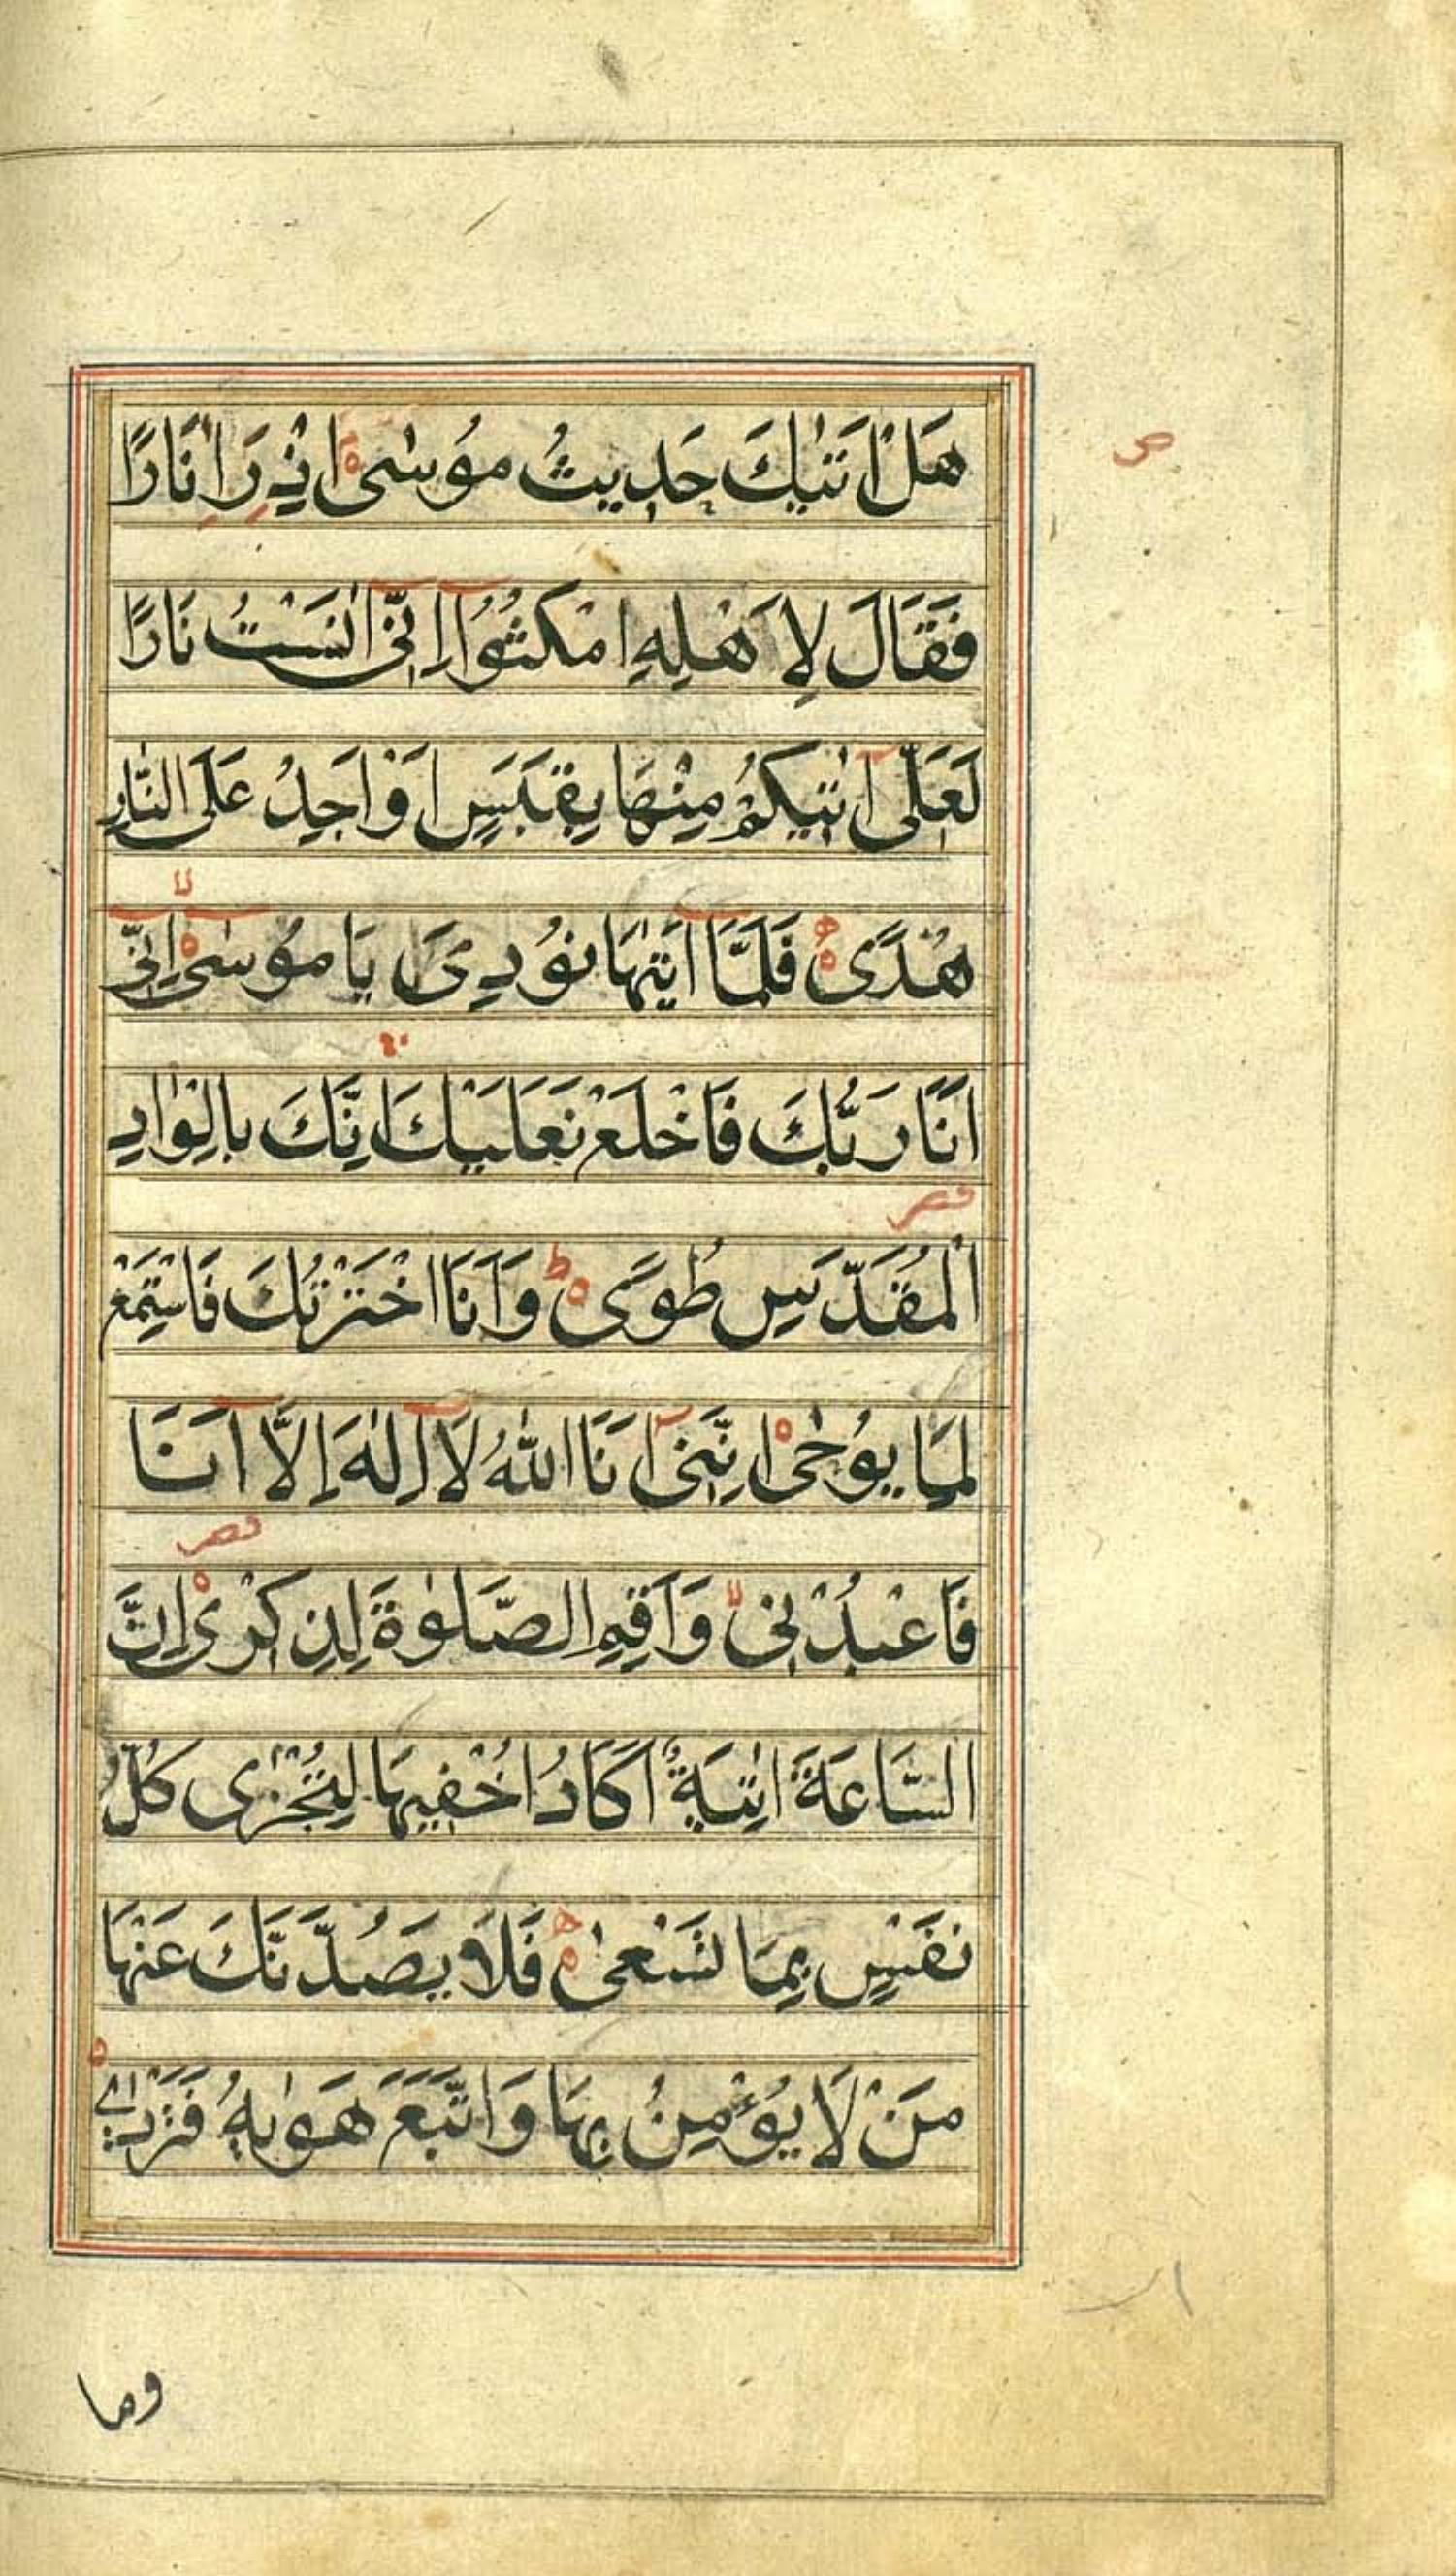 هَلْ اَتٰیكَ حَدِیثُ مُوسٰی اِذْ رَاٰ نَارًا
فَقَالَ لِاَهْلِهِ امْكُثُوۤا اِنِّیۤ اٰنَسْتُ نَارًا
لَعَلِّیۤ اٰتِیكُمْ مِنْهَا بِقَبَسٍ اَوْ اَجِدُ عَلَی النَّارِ
هُدًی فَلَمَّاۤ اَتٰیهَا نُودِیَ یَا مُوسٰیۤ اِنِّیۤ
اَنَا رَبُّكَ فَاخْلَعْ نَعْلَیْكَ اِنَّكَ بِالْوَادِ
الْمُقَدَّسِ طُوًی ط وَاَنَا اخْتَرْتُكَ فَاسْتَمِعْ
لِمَا یُوحٰی اِنَّنِیۤ اَنَا اللّٰهُ لَاۤ اِلٰهَ اِلَّاۤ اَنَا
فَاعْبُدْنِی لا وَاَقِمِ الصَّلٰوةَ لِذِكْرِی اِنَّ
السَّاعَةَ اٰتِیَةٌ اَكَادُ اُخْفِیهَا لِتُجْزٰی كُلُّ
نَفْسٍ بِمَا تَسْعٰی فَلَا یَصُدَّنَّكَ عَنْهَا
مَنْ لَا یُؤْمِنُ بِهَا وَاتَّبَعَ هَوٰیهُ فَتَرْدٰی
وما